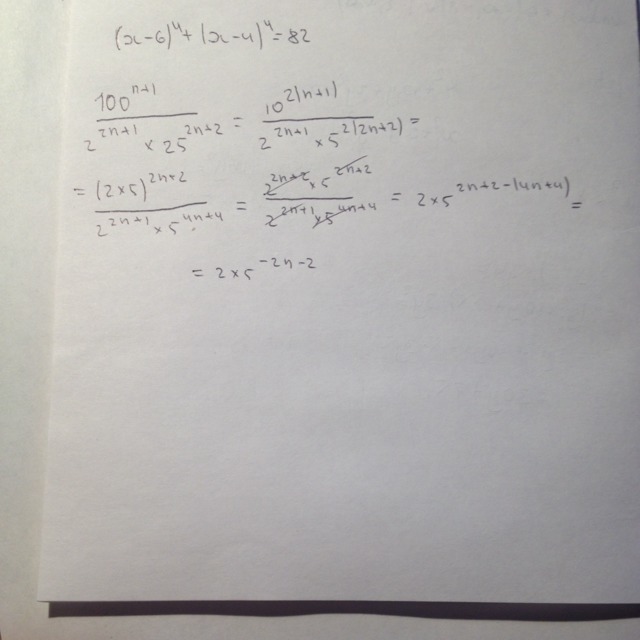 (x-6)⁴+(x-4)⁴=82
100^{n+1} / 2^{2n+1} × 25^{2n+2} = 10^{2(n+1)} / 2^{2n+1} × 5^{2(2n+2)} =
= (2×5)^{2n+2} / 2^{2n+1} × 5^{4n+4} = 2^{2n+2} × 5^{2n+2} / 2^{2n+1} × 5^{4n+4} = 2×5^{2n+2-(4n+4)} =
= 2×5^{-2n-2}